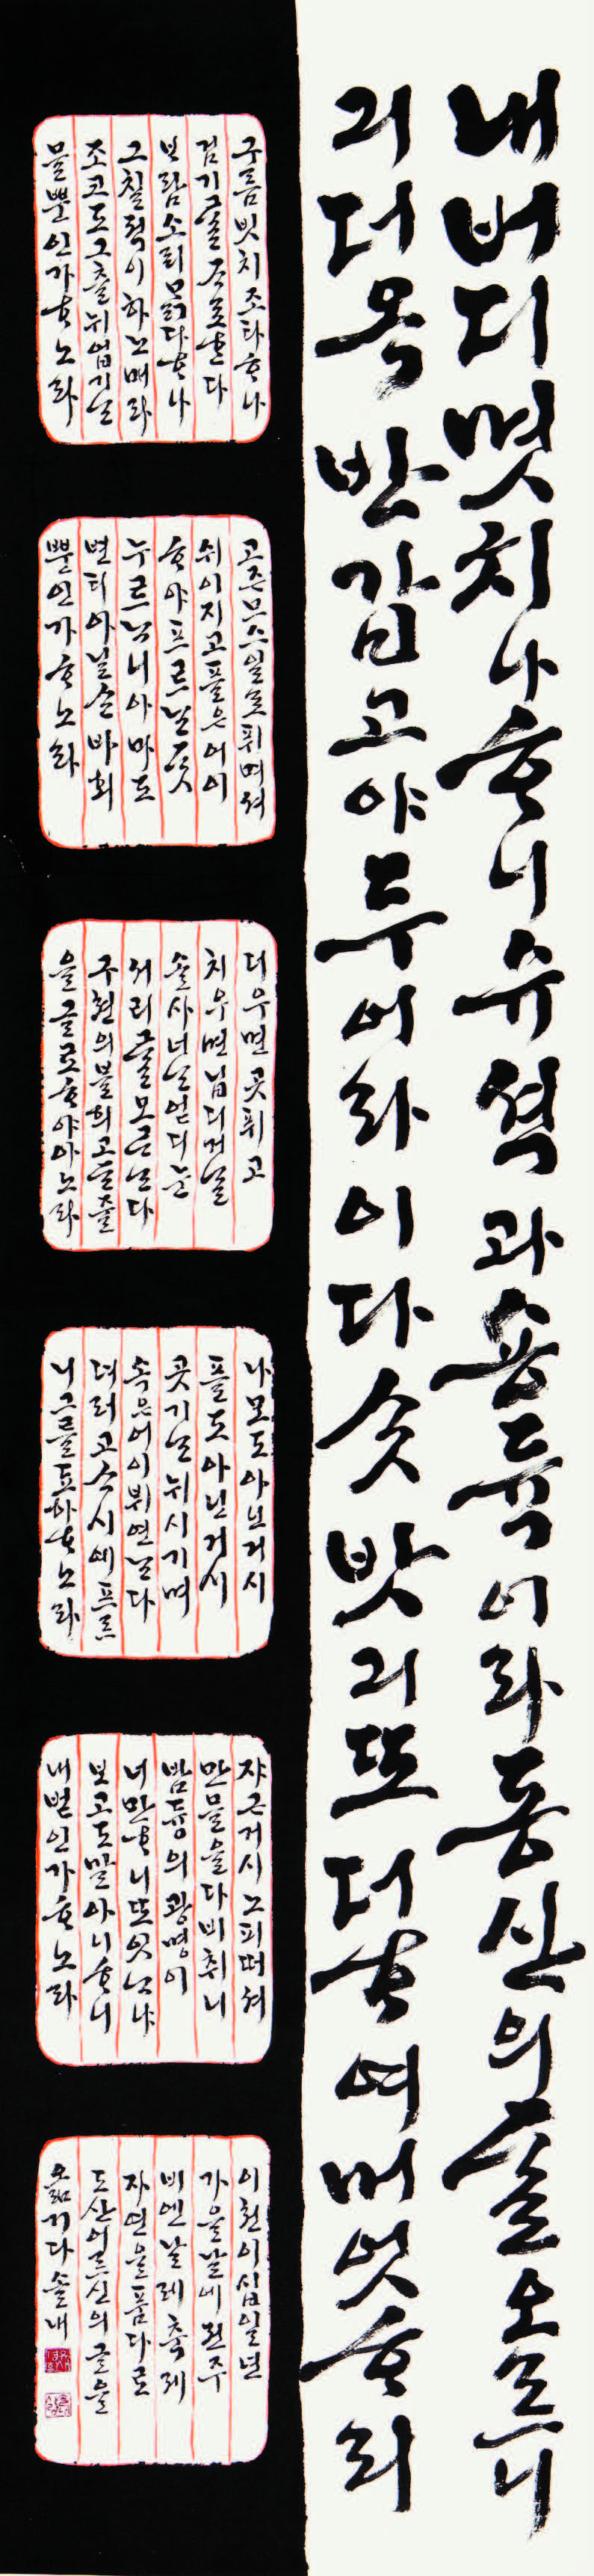 내버디몃치나ᄒᆞ니슈셕과숑듁이라동산의ᄃᆞᆯ오ᄅᆞ니
긔더옥반갑고야두어라이다ᄉᆞᆺ밧긔또더ᄒᆞ여머엇ᄒᆞ리
구룸빗치조타ᄒᆞ나
검기ᄅᆞᆯᄌᆞ로ᄒᆞᆫ다
ᄇᆞ람소ᄅᆡᄆᆞᆰ다ᄒᆞ나
그칠적이하노매라
조코도그츨뉘업기ᄂᆞᆫ
믈뿐인가ᄒᆞ노라
고즌므스일로퓌며셔
쉬이지고플은어이
ᄒᆞ야프르ᄂᆞᆫᄃᆞᆺ
누르ᄂᆞ니아마도
변티아닐ᄉᆞᆫ바회
뿐인가ᄒᆞ노라
더우면곳퓌고
치우면닙디거ᄂᆞᆯ
솔아너ᄂᆞᆫ얻디눈
서리ᄅᆞᆯ모ᄅᆞᄂᆞᆫ다
구쳔의블희고ᄃᆞᆫ줄
을글로ᄒᆞ야아노라
나모도아닌거시
플도아닌거시
곳기ᄂᆞᆫ뉘시기며
속은어이뷔연ᄂᆞᆫ다
뎌러고ᄉᆞ시예프르
니그를됴하ᄒᆞ노라
쟈근거시노피떠셔
만믈을다비취니
밤듕의광명이
너만ᄒᆞ니또잇ᄂᆞ냐
보고도말아니ᄒᆞ니
내벋인가ᄒᆞ노라
이천이십일년
가을날에전주
비엔날레축제
자연을품다로
도산어르신의글을
옮기다솔내